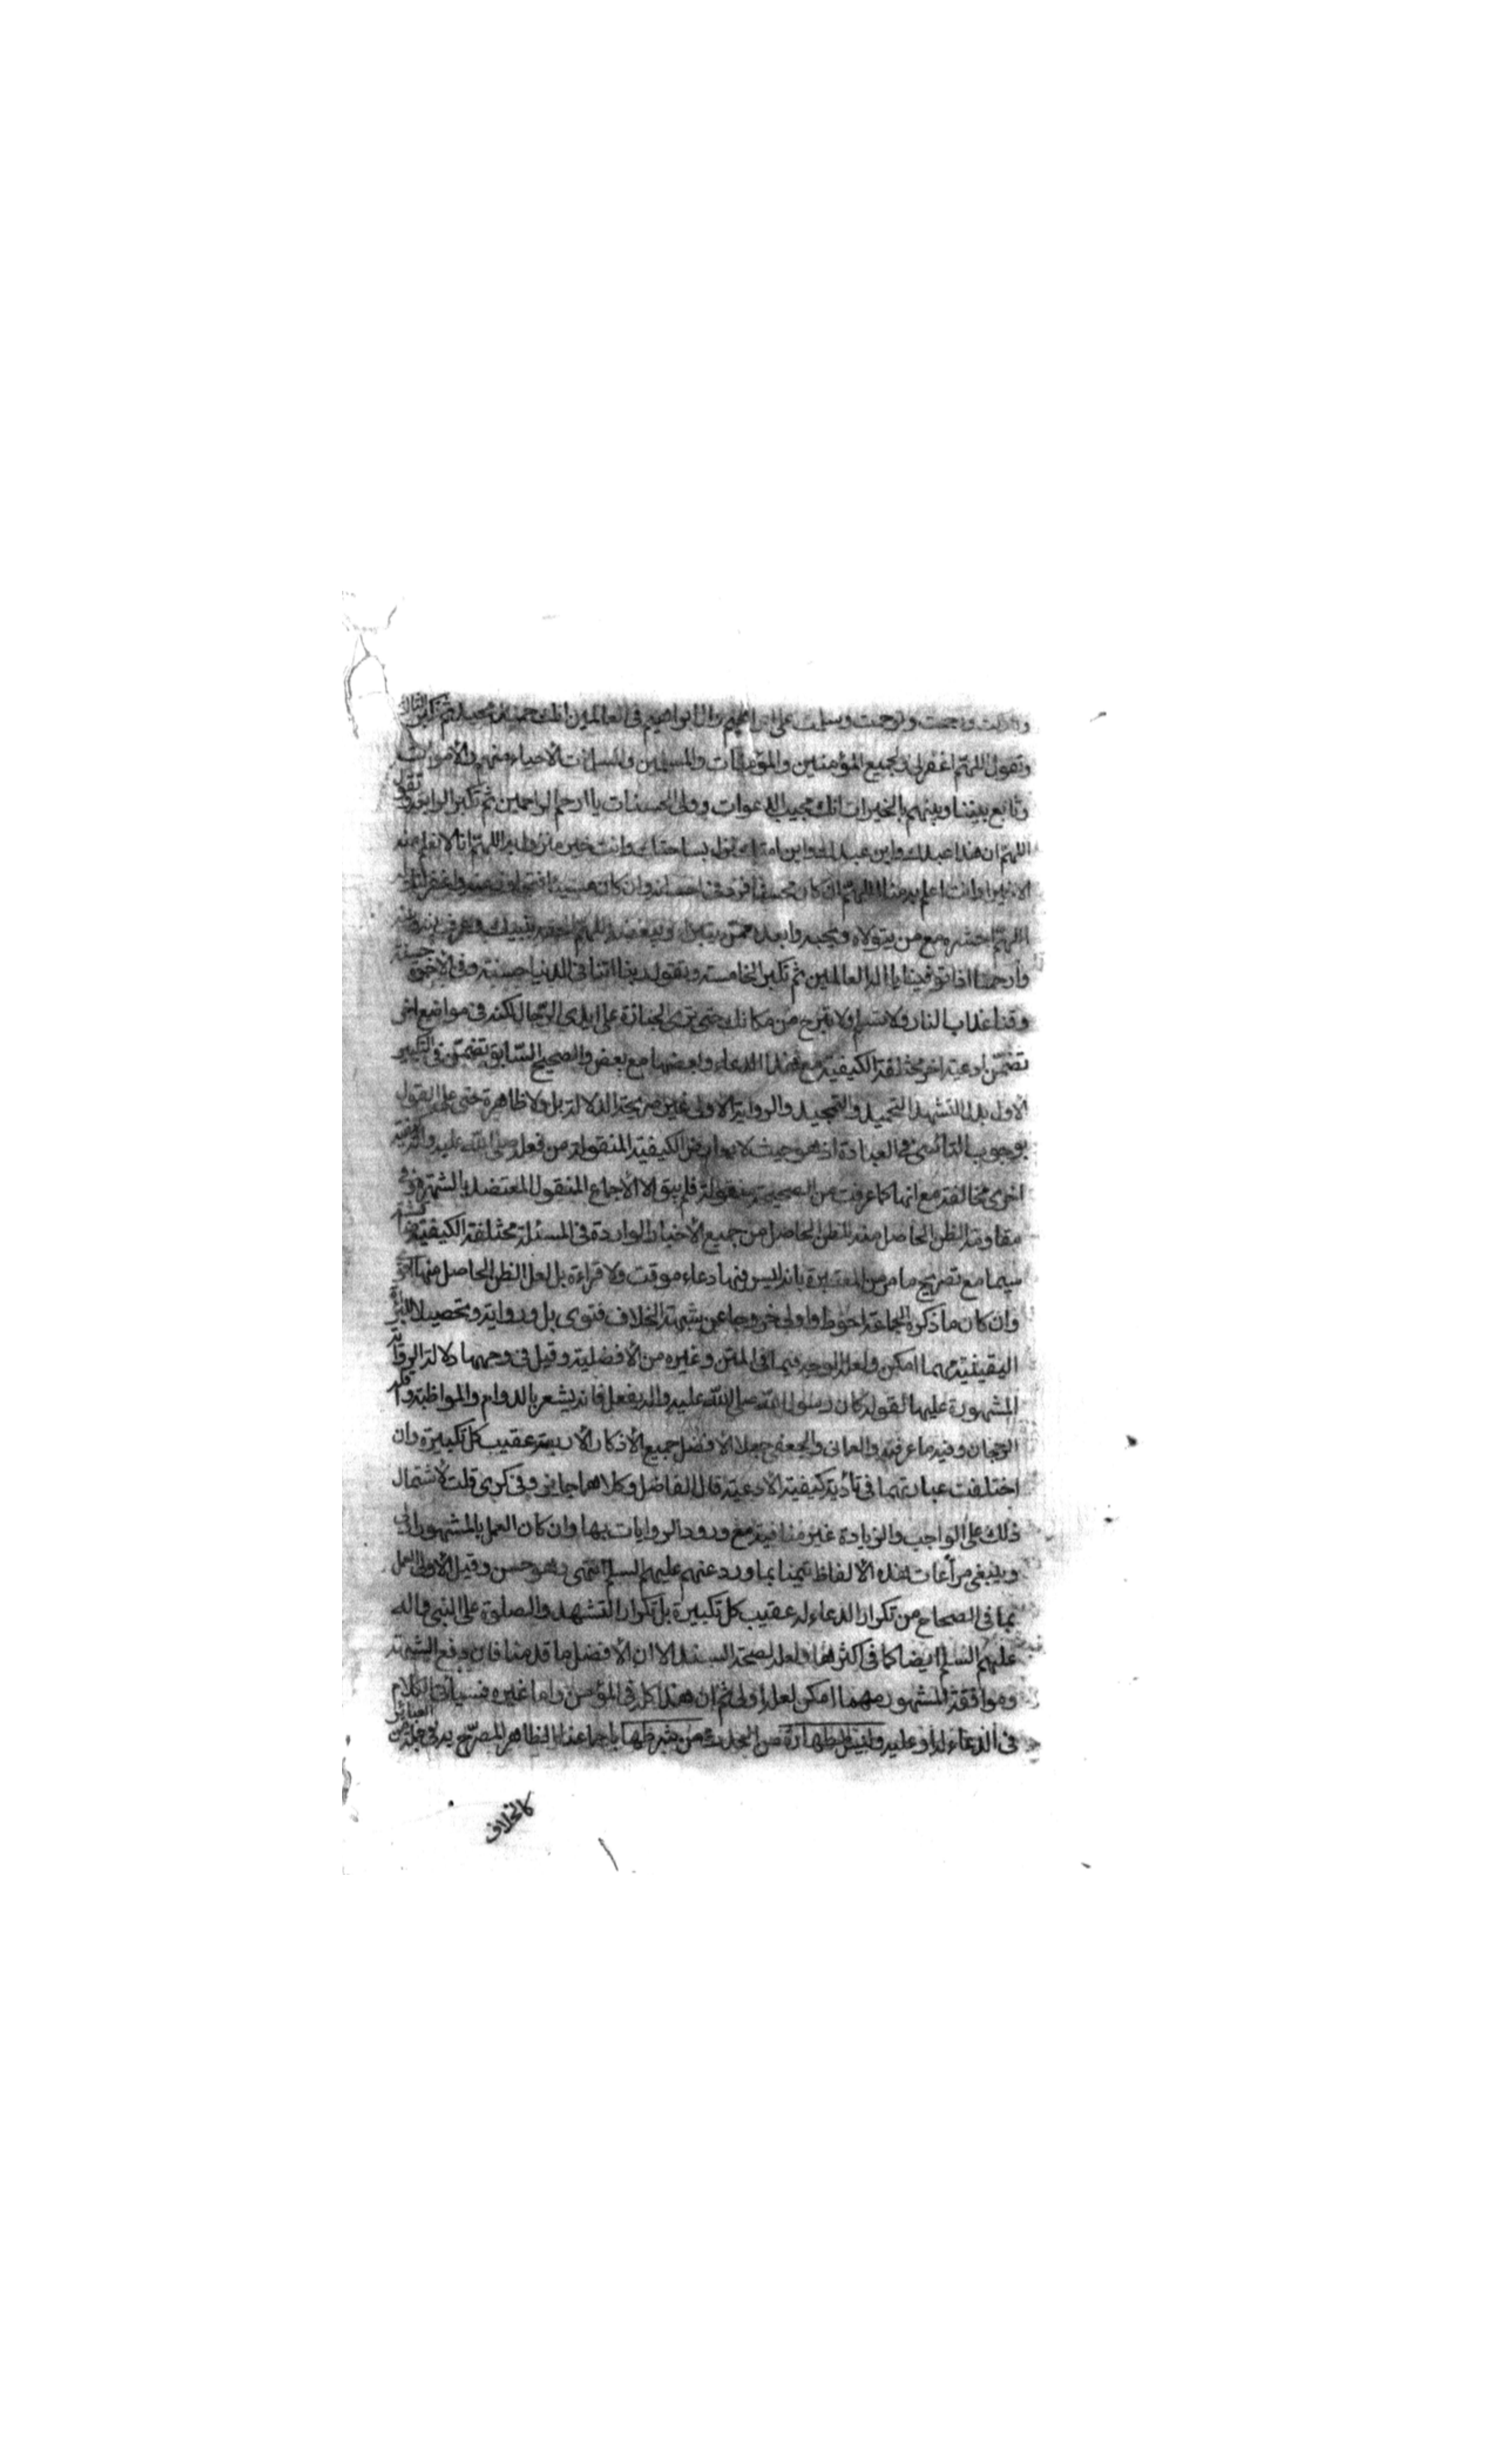 وباركت ورحمت وترحمت وسلمت على ابراهيم وال ابراهيم في العالمين انك حميد مجيد ثم تكبر الثالثة
وتقول اللهم اغفر لي ولجميع المؤمنين والمؤمنات والمسلمين والمسلمات الاحياء منهم والاموات
وتابع بيننا وبينهم بالخيرات انك مجيب الدعوات وولي الحسنات يا ارحم الراحمين ثم تكبر الرابعة وتقول
اللهم ان هذا عبدك وابن عبدك وابن امتك نزل بساحتك وانت خير منزول به اللهم انا لا نعلم منه
الا خيرا وانت اعلم به منا اللهم ان كان محسنا فزد في احسانه وان كان مسيئا فتجاوز عنه واغفر لنا وله
اللهم احشره مع من يتولاه ويحبه وابعده ممن يتبرا ويبغضه اللهم الحقه بنبيك وعرف بينه وبينه
وارحمنا اذا توفيتنا يا اله العالمين ثم تكبر الخامسة وتقول ربنا اتنا في الدنيا حسنة وفي الاخرة حسنة
وقنا عذاب النار ولا تسلم ولا تبرح من مكانك حتى ترى الجنازة على ايدي الرجال لكنه في مواضع اخر
تضمن ادعية اخر مختلفة الكيفية مع هذا الدعاء وبعضها مع بعض والصحيح السابق تضمن في التكبير
الاول بدل التشهد التحميد والتمجيد والرواية الاولى غير صريحة الدلالة بل ولا ظاهرة حتى على القول
بوجوب التاسي في العبادة اذ هو حيث لا يعارض الكيفية المنقولة من فعله صلى الله عليه واله كيفية
اخرى مخالفة مع انها كما عرفت من الصحيحة منقولة فلم يبق الا الاجماع المنقول المعتضد بالشهرة وفي
مقاومة الظن الحاصل منه للظن الحاصل من جميع الاخبار الواردة في المسئلة مختلفة الكيفية
سيما مع تصريح ما مر من المعتبرة بانه ليس فيها دعاء موقت ولا قراءة بل لعل الظن الحاصل منها اقوى
وان كان ما ذكره الجماعة احوط واولى خروجا عن شبهة الخلاف فتوى بل ورواية وتحصيلا للبراءة
اليقينية مهما امكن ولعله الوجه فيما في المتن وغيره من الافضلية وقيل في وجهها دلالة الرواية
المشهورة عليها لقوله كان رسول الله صلى الله عليه واله يفعل فانه يشعر بالدوام والمواظبة واقله
الرجحان وفيه ما عرفته والعماني والجعفي جعلا الافضل جميع الاذكار الاربعة عقيب كل تكبيرة وان
اختلفت عبارتهما في تأدية كيفية الادعية قال الفاضل وكلاهما جايز وفي كرى قلت لاشتمال
ذلك على الواجب والزيادة غير منافية مع ورود الروايات بها وان كان العمل بالمشهور اولى
وينبغي مراعات هذه الالفاظ تيمنا بما ورد عنهم عليهم السلم انتهى وهو حسن وقيل الاولى العمل
بما في الصحاح من تكرار الدعاء له عقيب كل تكبيرة بل تكرار التشهد والصلوة على النبي واله
عليهم السلم ايضا كما في اكثرها ولعله لصحة السند الا ان الافضل ما قدمنا فان دفع الشبهة
وموافقة المشهور مهما امكن لعله اولى ثم ان هذا كله في المؤمن واما غيره فسياتي الكلام
في الدعاء له او عليه وليس الطهارة من الحدث من شرطها باجماعنا الظاهر المصرح به في جملة من العبائر
كالخلاف